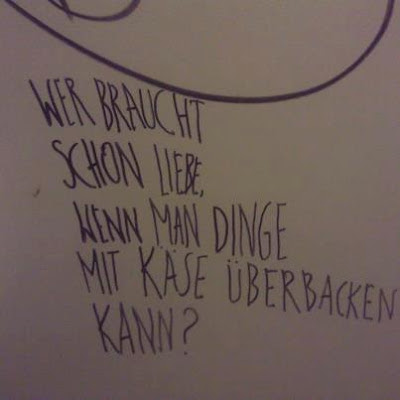 WER BRAUCHT
SCHON LIEBE,
WENN MAN DINGE
MIT KÄSE ÜBERBACKEN
KANN?